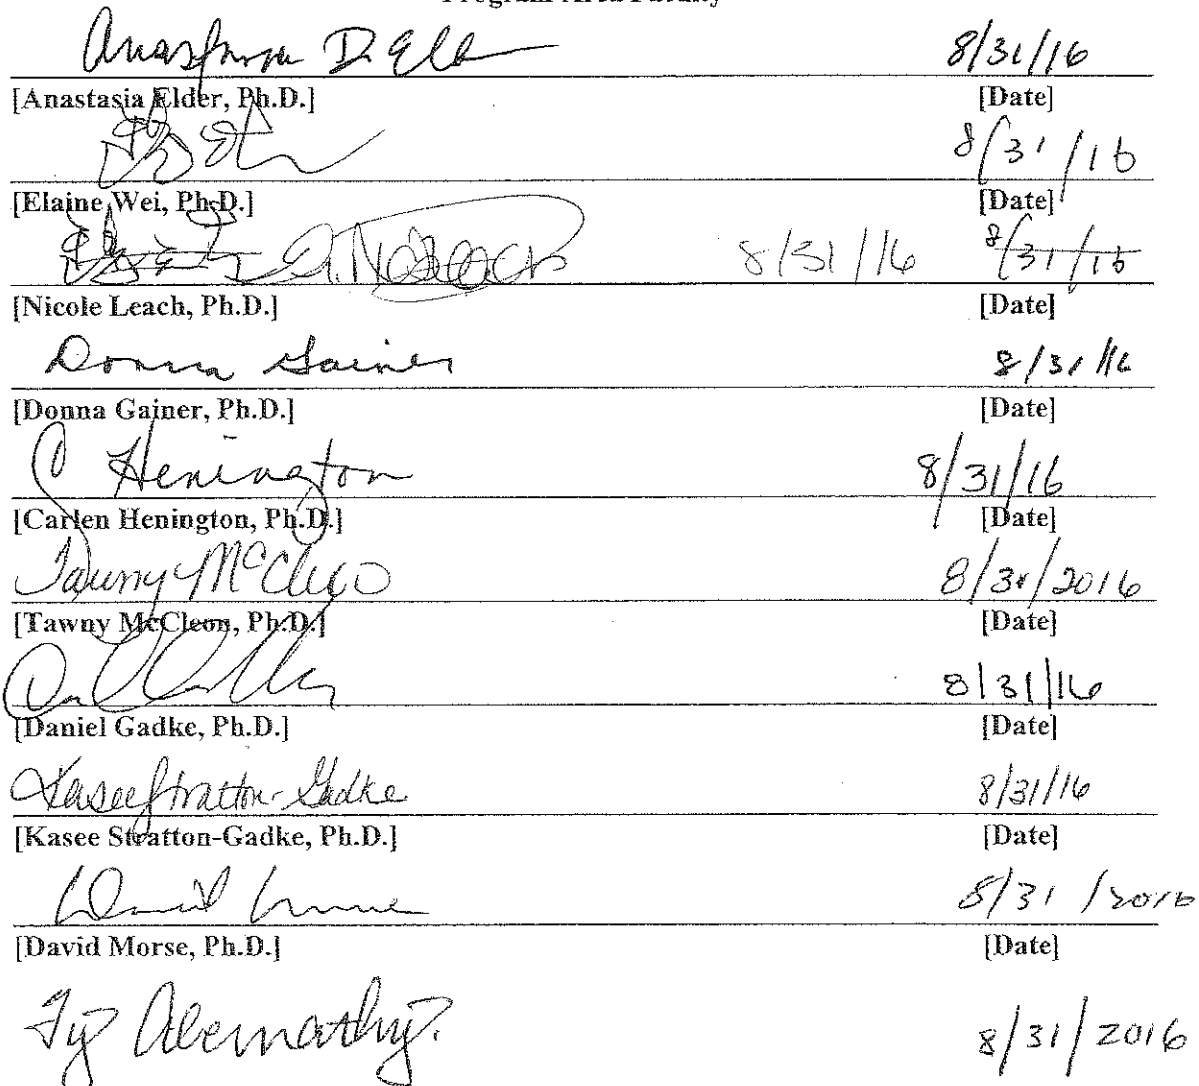 Program Area Faculty
Anastasia D. Elder 8/31/16
[Anastasia Elder, Ph.D.] [Date]
8/31/16
[Elaine Wei, Ph.D.] [Date]
8/31/16 8/31/16
[Nicole Leach, Ph.D.] [Date]
Donna Gainer 8/31/16
[Donna Gainer, Ph.D.] [Date]
C Henington 8/31/16
[Carlen Henington, Ph.D.] [Date]
Tawny McCleo 8/31/2016
[Tawny McCleon, Ph.D.] [Date]
8/31/16
[Daniel Gadke, Ph.D.] [Date]
Kasee Stratton-Gadke 8/31/16
[Kasee Stratton-Gadke, Ph.D.] [Date]
David 8/31/2016
[David Morse, Ph.D.] [Date]
Ty Abernathy 8/31/2016